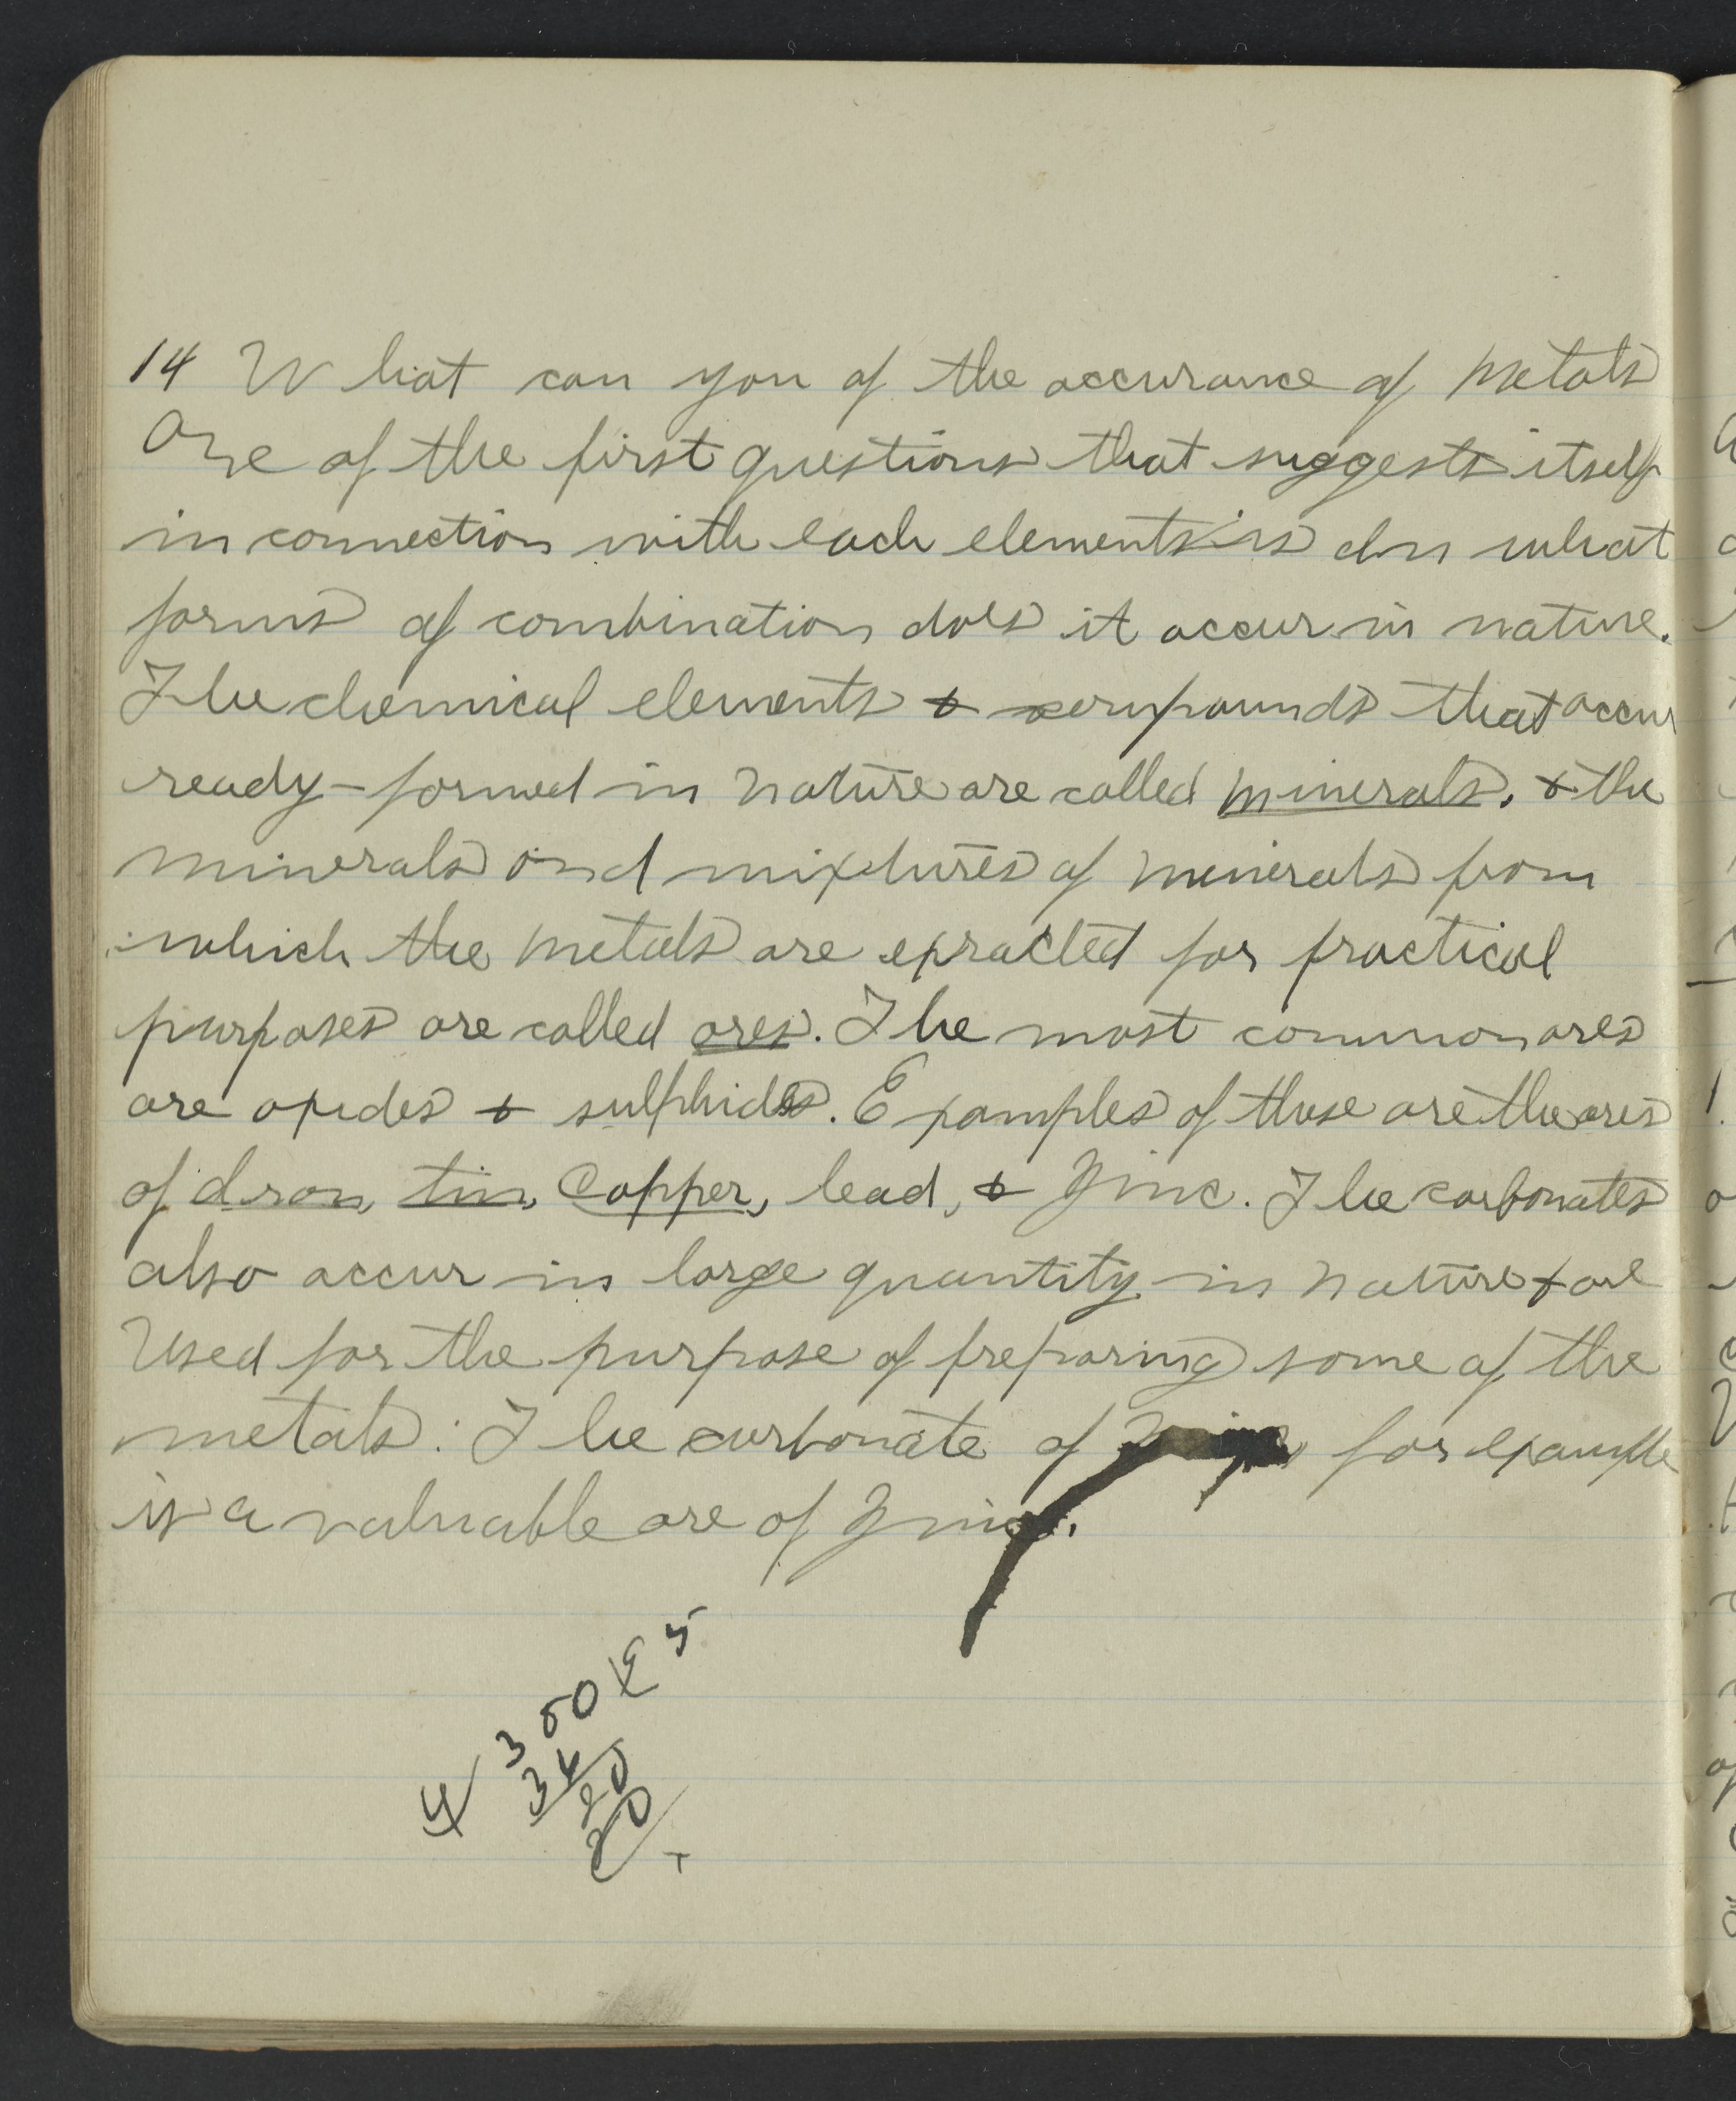 14 What can you of the accurance of Metals
One of the first questions that suggests itself
in connection with each elements is In what
forms of combination does it occur in nature.
The chemical elements & compounds that occur
ready-formed in nature are called minerals, & the
minerals and mixtures of minerals from
which the metals are exracted for practical
purposes are called ores. The most common ores
are oxides & sulphides. Examples of these are the ores
of Iron, tin, Copper, lead, & Zinc. The carbonates
also occur in large quantity in nature & are
Used for the purpose of preparing some of the
metals. The carbonate of Zinc, for example
is a valuable ore of Zinc.
5
4 360
34
20
20